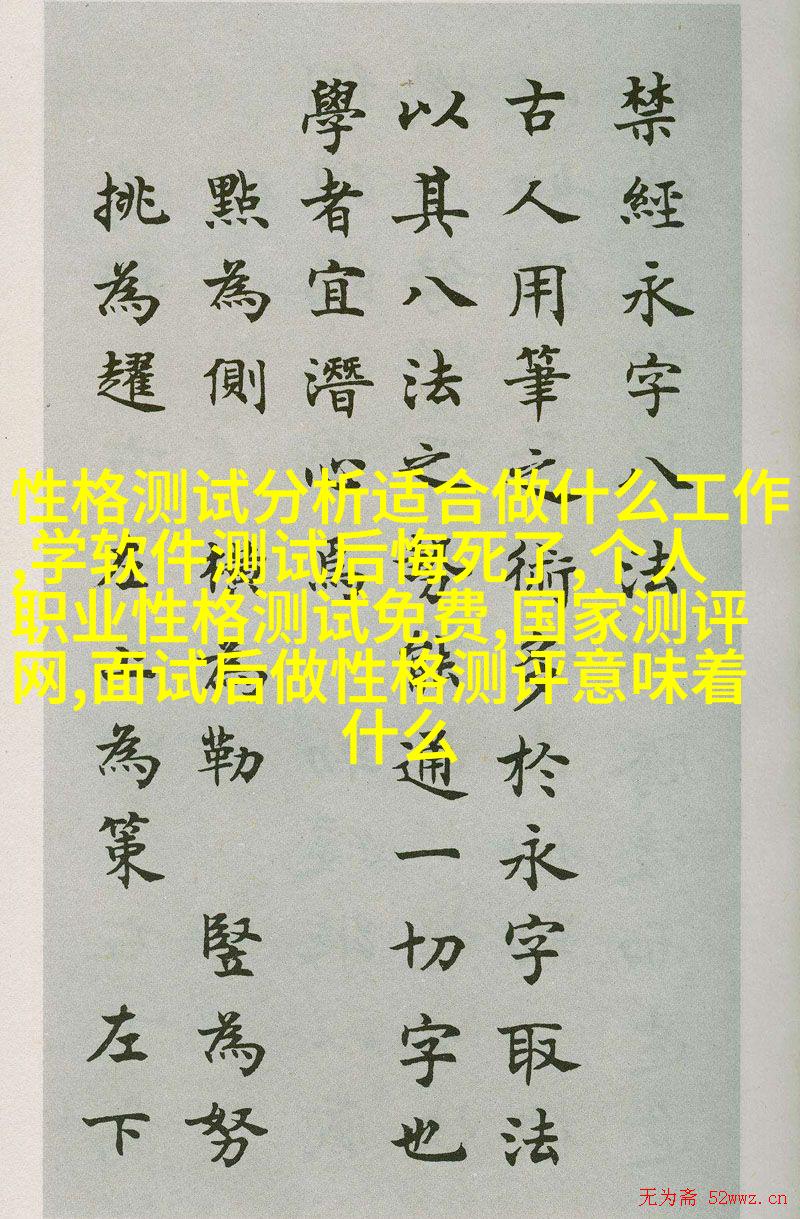 禁經永字八法
古人用筆之術多於永字取法
以其八法之勢能通一切字也
學者宜潛心焉
點為側 橫為勒 豎為努
挑為趯 左上為策 左下
性格测试分析适合做什么工作
,学软件测试后悔死了,个人
职业性格测试免费,国家测评
网,面试后做性格测评意味着
什么
无为斋 52wwz.cn